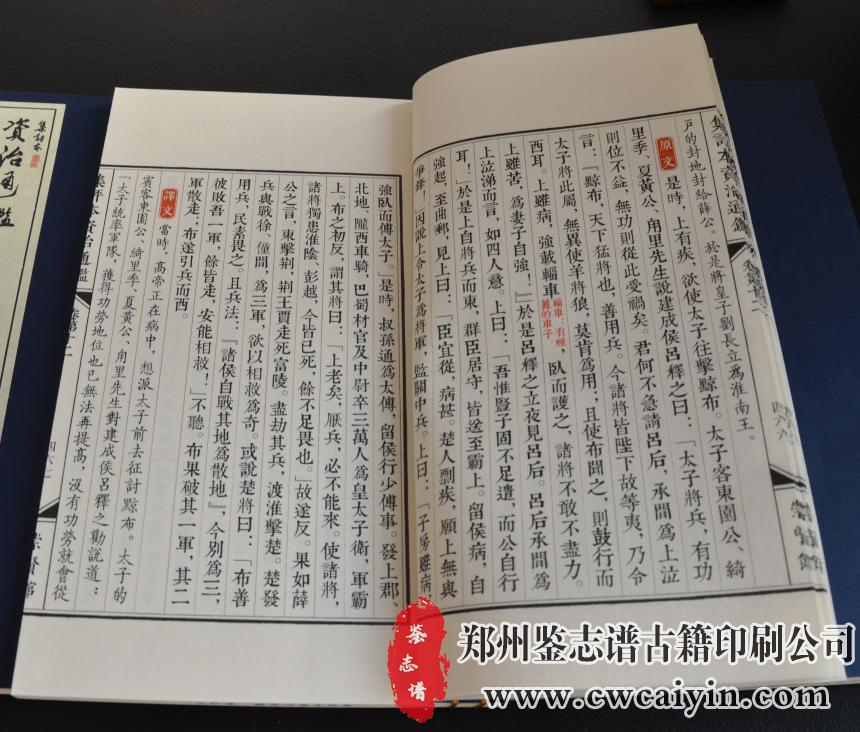 集評本資治通鑑 卷第十二
戶的封地封給薛公。於是將皇子劉長立爲淮南王。
原文 是時，上有疾，欲使太子往擊黥布。太子客東園公、綺
里季、夏黃公、甪里先生說建成侯呂釋之曰：「太子將兵，有功
則位不益，無功則從此受禍矣。君何不急請呂后，承間爲上泣
言：『黥布，天下猛將也，善用兵。今諸將皆陛下故等夷，乃令
太子將此屬，無異使羊將狼，莫肯爲用；且使布聞之，則鼓行而
西耳。上雖病，強載輜車輜車：有帷蓋的車子。，臥而護之，諸將不敢不盡力。
上雖苦，爲妻子自強！』」於是呂釋之立夜見呂后。呂后承間爲
上泣涕而言，如四人意。上曰：「吾惟豎子固不足遣，而公自行
耳！」於是上自將兵而東，群臣居守，皆送至霸上。留侯病，自
強起，至曲郵，見上曰：「臣宜從，病甚。楚人剽疾，願上無與
爭鋒！」因說上令太子爲將軍，監關中兵。上曰：「子房雖病，
強臥而傅太子。」是時，叔孫通爲太傅，留侯行少傅事。發上郡、
北地、隴西車騎，巴蜀材官及中尉卒三萬人爲皇太子衛，軍霸
上。布之初反，謂其將曰：「上老矣，厭兵，必不能來。使諸將，
諸將獨患淮陰、彭越，今皆已死，餘不足畏也。」故遂反。果如薛
公之言，東擊荊，荊王賈走死富陵。盡劫其兵，渡淮擊楚。楚發
兵與戰徐、僮間，爲三軍，欲以相救爲奇。或說楚將曰：「布善
用兵，民素畏之。且兵法：『諸侯自戰其地爲散地』，今別爲三，
彼敗吾一軍，餘皆走，安能相救！」不聽。布果破其一軍，其二
軍散走；布遂引兵而西。
譯文 當時，高帝正在病中，想派太子前去征討黥布。太子的
賓客東園公、綺里季、夏黃公、甪里先生對建成侯呂釋之勸說道：
「太子統率軍隊，獲得功勞地位也已無法再提高，沒有功勞就會從
集評本資治通鑑 卷第十二 四六七 崇賢館
集評本
資治通鑑
鉴志谱
郑州鉴志谱古籍印刷公司
www.cwcaiyin.com